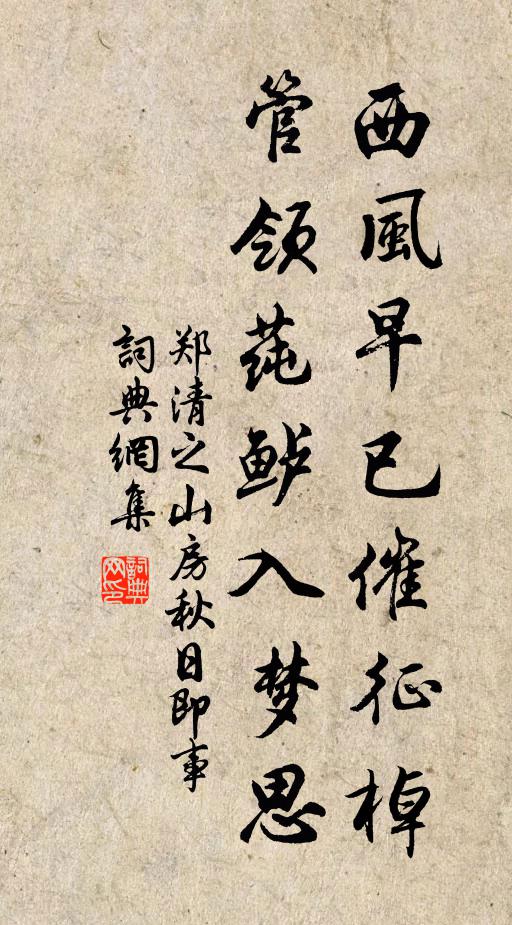 西風早已催征棹
管領莼鲈入梦思
郑清之山房秋日即事
詞典網集
詞典网印